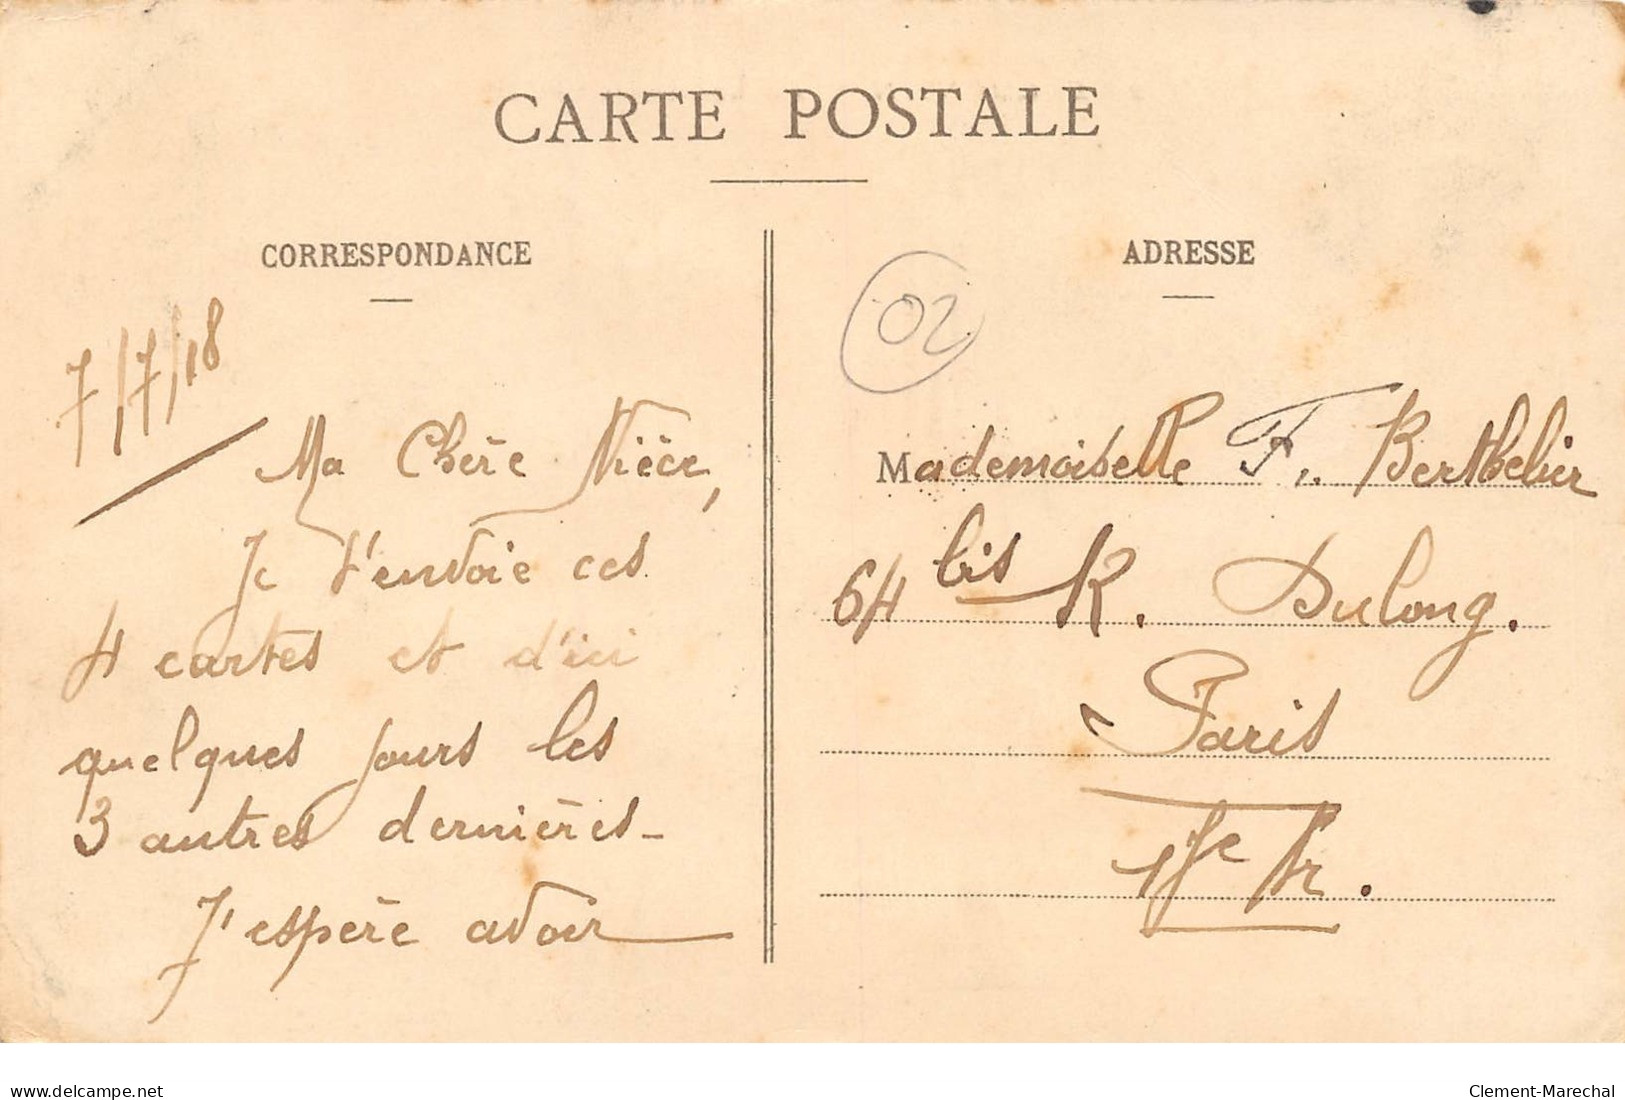 CARTE POSTALE
CORRESPONDANCE
7/7/18
Ma Chère Nièce,
Je t'envoie ces
4 cartes et d'ici
quelques jours les
3 autres dernières -
J'espère avoir
ADRESSE
02
Mademoiselle F. Berthelier
64 bis R. Dulong.
Paris
17e Ar.
delcampe.net
Clement-Marechal